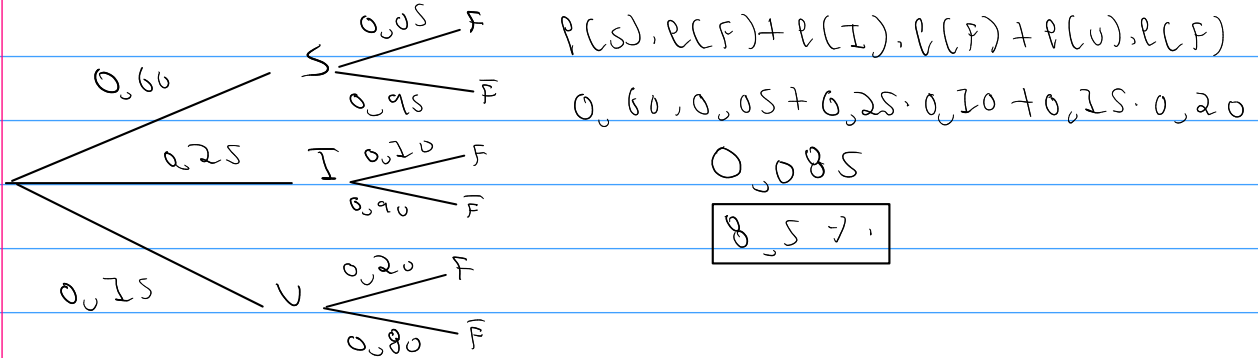 0,05 F
0,60 S
0,95 F̅
0,25 I 0,10 F
0,90 F̅
0,15 U 0,20 F
0,80 F̅
P(S).P(F)+P(I).P(F)+P(U).P(F)
0,60.0,05+0,25.0,10+0,15.0,20
0,085
8,5 %